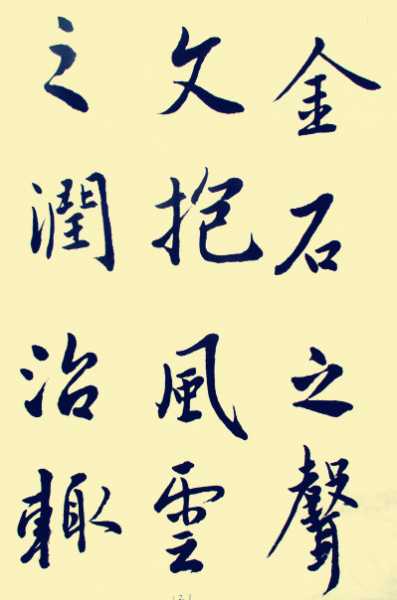 金石之聲
文抱風雲
之潤治輙